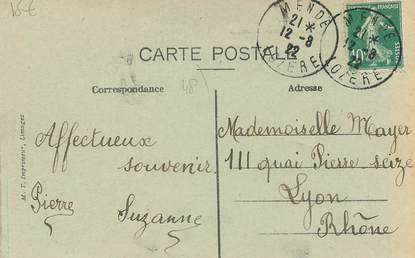 15€
MENDE
21*
12-8
22
LOZERE
MENDE
21*
12-8
22
LOZERE
10
POSTES
CARTE POSTALE
Correspondance
48
Adresse
M. T. Imprimeur, Limoges
Affectueux
souvenir.
Pierre
Suzanne
Mademoiselle Mayer
111 quai Pierre-seize
Lyon
Rhône